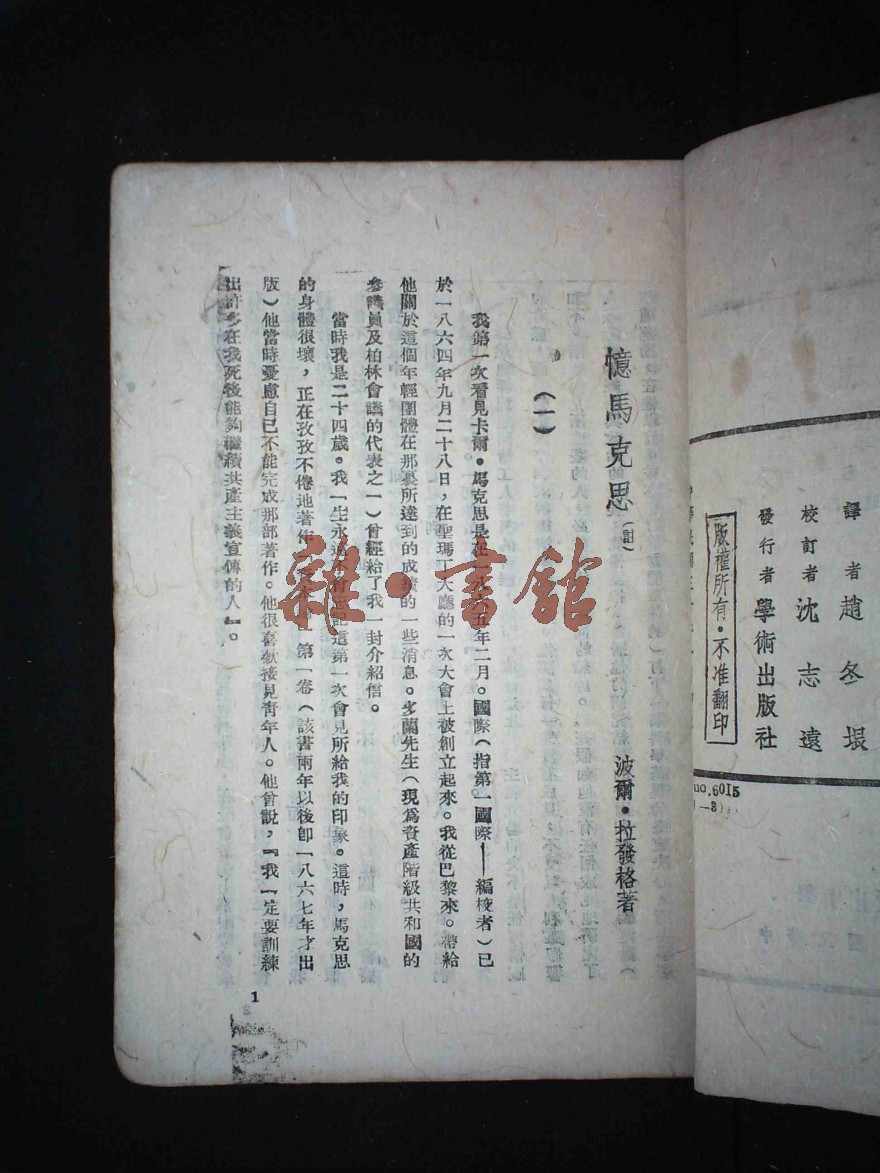 譯者趙冬垠
校訂者沈志遠
發行者學術出版社
版權所有·不准翻印
no.6015
憶馬克思
波爾·拉發格著
(一)
我第一次看見卡爾·馬克思是在一八六五年二月。國際(指第一國際——編校者)已
於一八六四年九月二十八日,在聖瑪丁大廳的一次大會上被創立起來。我從巴黎來。帶給
他關於這個年輕團體在那裏所達到的成績的一些消息。多蘭先生(現爲資產階級共和國的
參議員及柏林會議的代表之一)曾經給了我一封介紹信。
當時我是二十四歲。我一生永遠不會忘記這第一次會見所給我的印象。這時,馬克思
的身體很壞,正在孜孜不倦地著作 第一卷(該書兩年以後卽一八六七年才出
版)他當時憂慮自己不能完成那部著作。他很喜歡接見靑年人。他曾說,『我一定要訓練
出許多在我死後能夠繼續共產主義宣傳的人』。
1
雜·書館